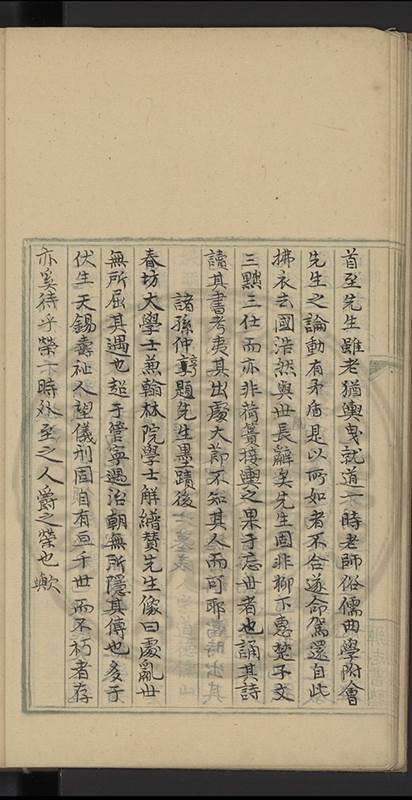 首至先生雖老猶輿曳就道一時老師俗儒曲學附會
先生之論動有矛盾是以所如者不合遂命駕還自此
拂衣去國浩然與世長辭矣先生固非柳下惠楚子文
三黜三仕而亦非荷蕢接輿之果于忘世者也誦其詩
讀其書考夷其出處大節不知其人而可耶
諸孫仲題先生墨蹟後
春坊大學士兼翰林院學士解縉贊先生像曰處亂世
無所屈其遇也超于管寧遇治朝無所隱其傳也多于
伏生天錫壽祉人望儀刑固自有亘千世而不朽者存
亦奚待乎榮一時外至之人爵之榮也歟